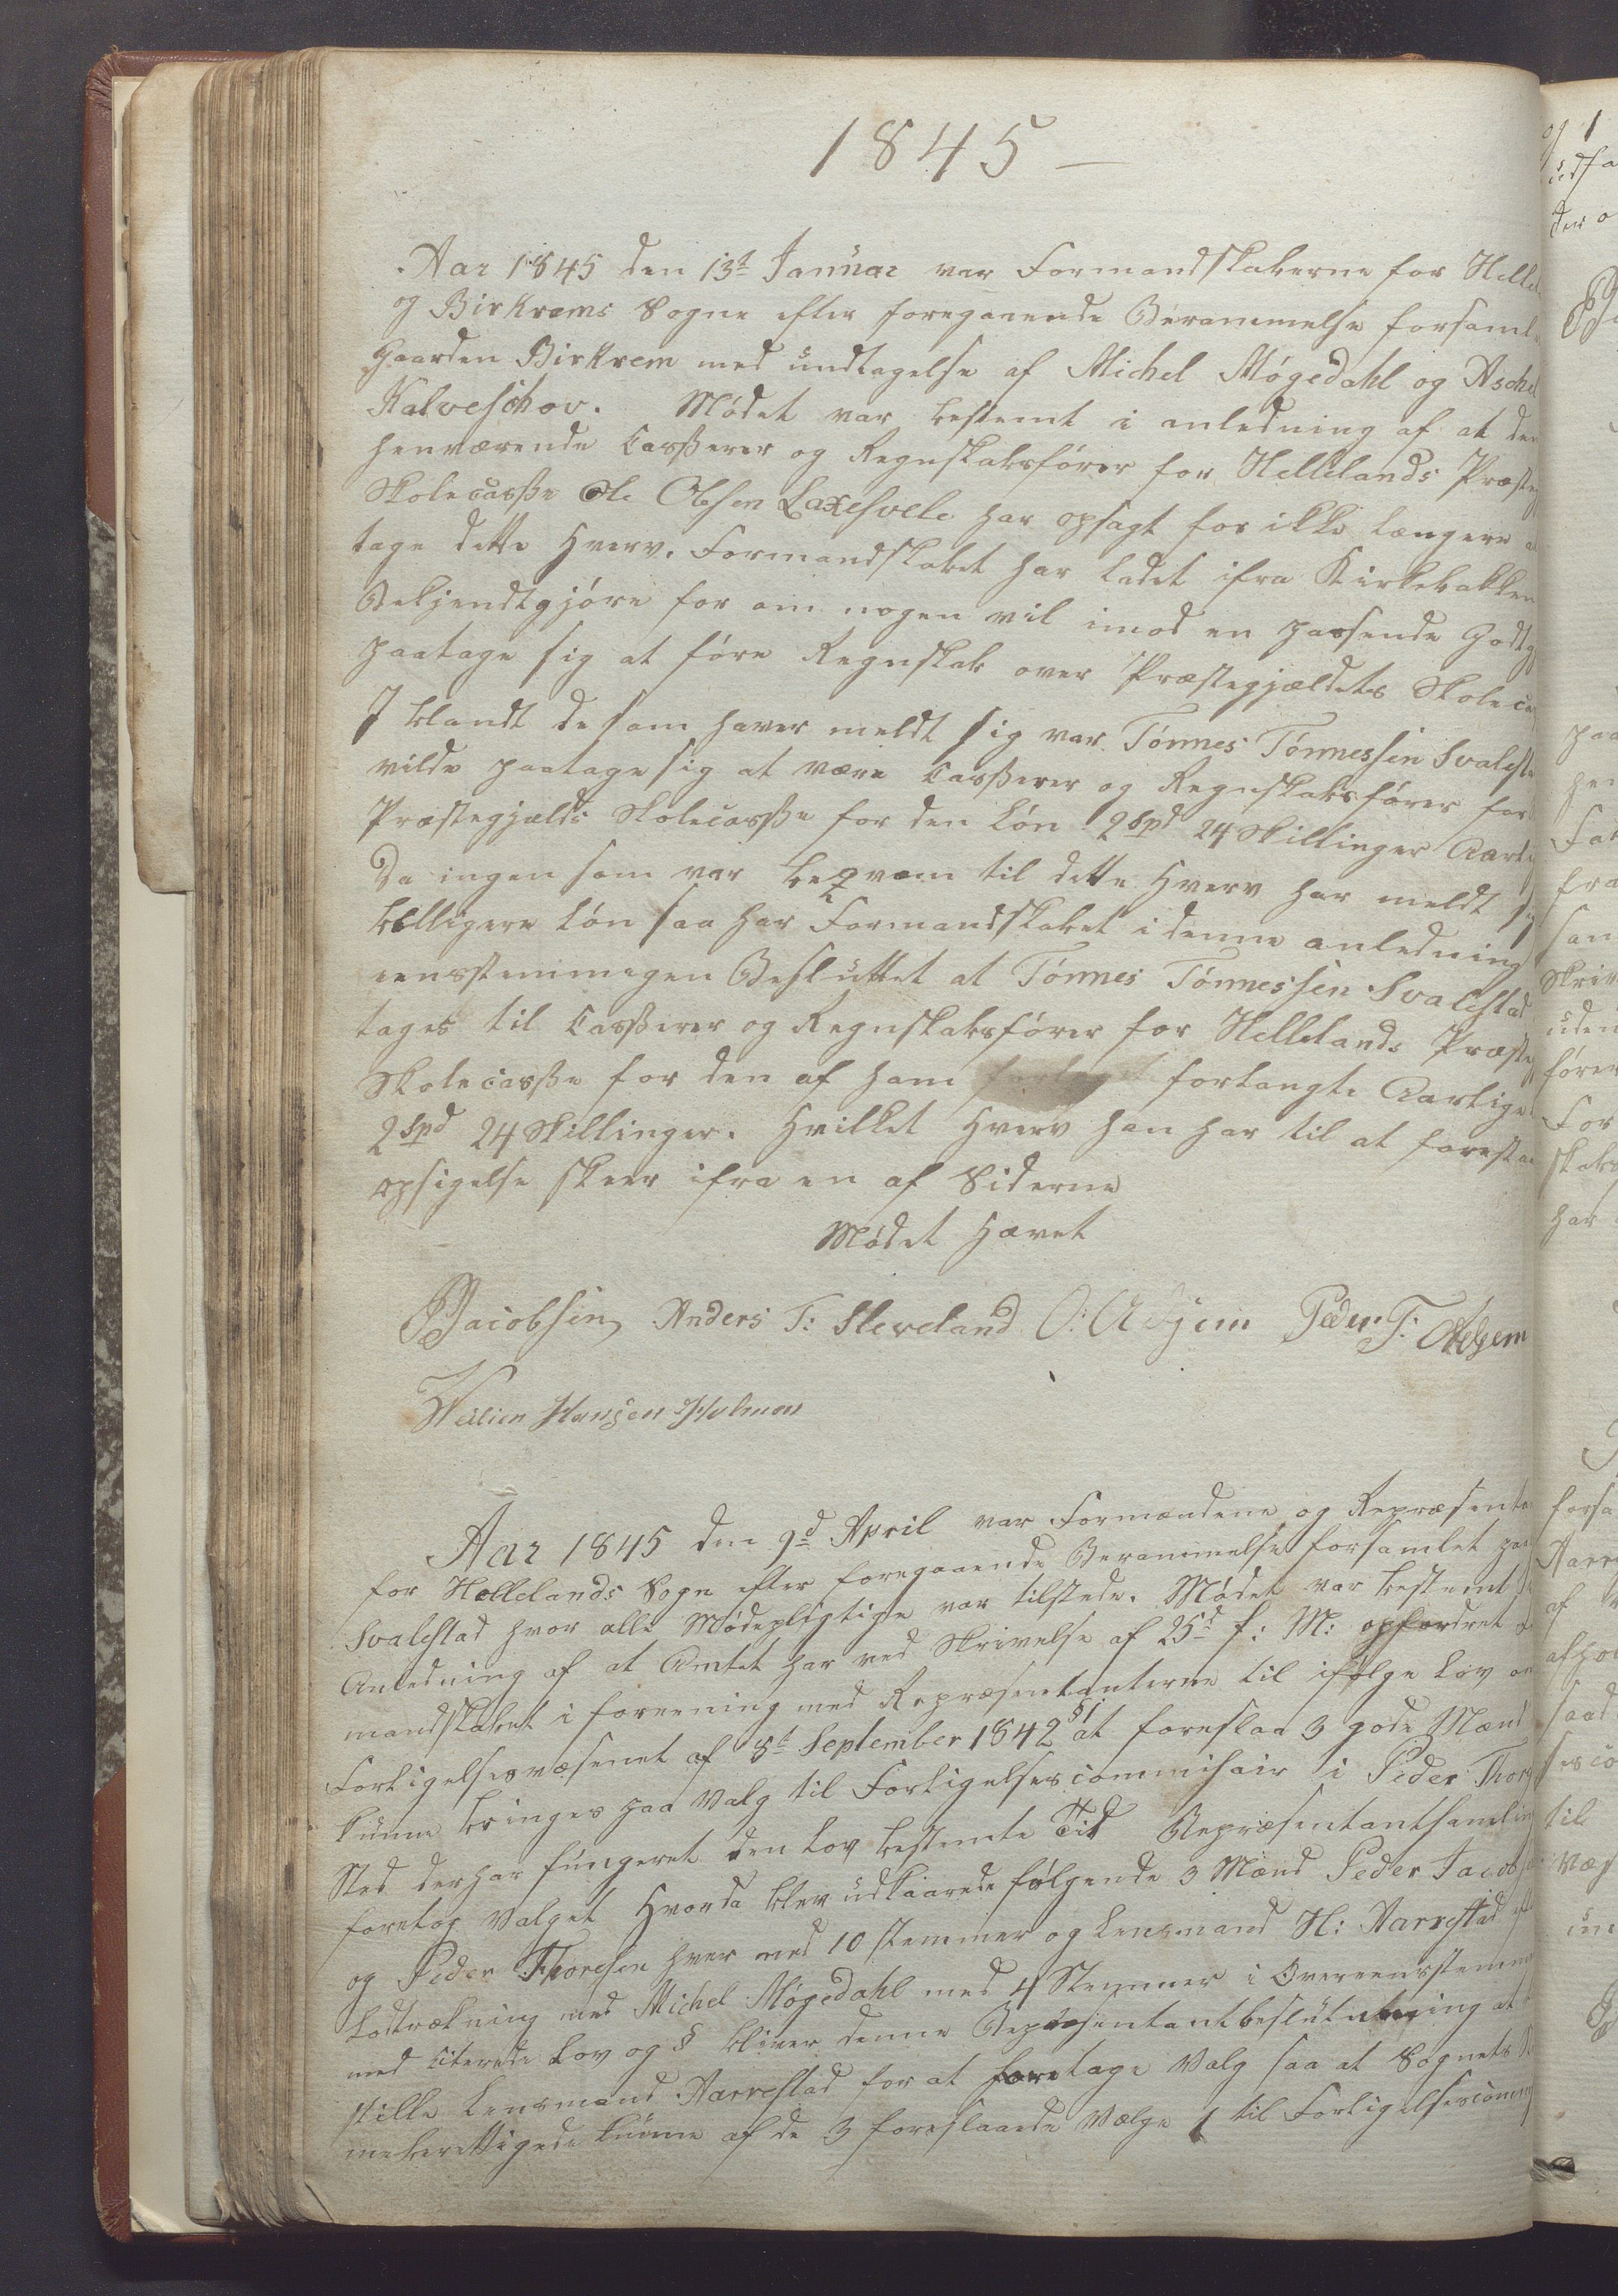 1845 –
Aar 1845 den 13de Januar var Formandskaberne for Helle
og Birkrems Sogne efter foregaaende Berammelse forsaml
Gaarden Birkrem med undtagelse af Michel Møgedahl og Aschel
Kalveschov. Mødet var bestemt i anledning af at den
henværende Casserer og Regnskabsfører for Hellelands Præsteg
Skolecasse Ole Olsen Laxesvele har opsagt for ikke længere a
tage dette Hverv. Formandskabet har ladet ifra Kirkebakken
Bekjendtgjøre for om nogen vil imod en passende Godtg
paatage sig at føre Regnskab over Præstegjældets Skoleca
I blandt de som haver meldt sig var Tønnes Tønnessen Svalesta
vilde paatage sig at være Casserer og Regnskabsfører for
Præstegjælds Skolecasse for den Løn 2 Spd 24 Skillinger Aarli
Da ingen som var beqvem til dette Hverv har meldt sig
billigere Løn saa har Formandskabet i denne anledning
eensstemmigen Besluttet at Tønnes Tønnessen Svalestad
tages til Casserer og Regnskabsfører for Hellelands Præsteg
Skolecasse for den af ham forlangte Aarlige
2 Spd 24 Skillinger. Hvilket Hverv han har til at forestaa
opsigelse skeer ifra en af Siderne
Mødet Hævet
PJacobsen Anders T: Sleveland O: Odgjem Peder T: Odgjem
Hansen Holmen
Aar 1845 den 9d April var Formændene og Repræsenta
for Hellelands Sogn efter foregaaende Berammelse forsamlet paa
Svalestad hvor alle Mødepligtige var tilstede. Mødet var bestemt i
Anledning af at Amtet har ved Skrivelse af 25d f: M: opfordret
mandskabet i foreening med Repræsentanterne til ifølge Lov om
Forligelsesvæsenet af 8de September 1842 §1 at foreslaa 3 gode Mænd
kunne bringes paa Valg til Forligelsescommisair i Peder Thors
Sted der har fungeret den Lov bestemte Tid Repræsentantsamlin
foretog Valget Hvorda blev udkaarede følgende 3 Mænd Peder Jacobse
og Peder Thoresen hver med 10 stemmer og Lensmand H: Aarrestad eft
Lodtrækning med Michel Møgedahl med 4 Stemmer i Overeensstemme
med Citerede Lov og § bliver denne Repræsentantbeslutning at
stille Lensmand Aarrestad for at foretage Valg saa at Sognets St
meberettigede kunne af de 3 foreslaaede Vælge 1 til Forligelsescomm